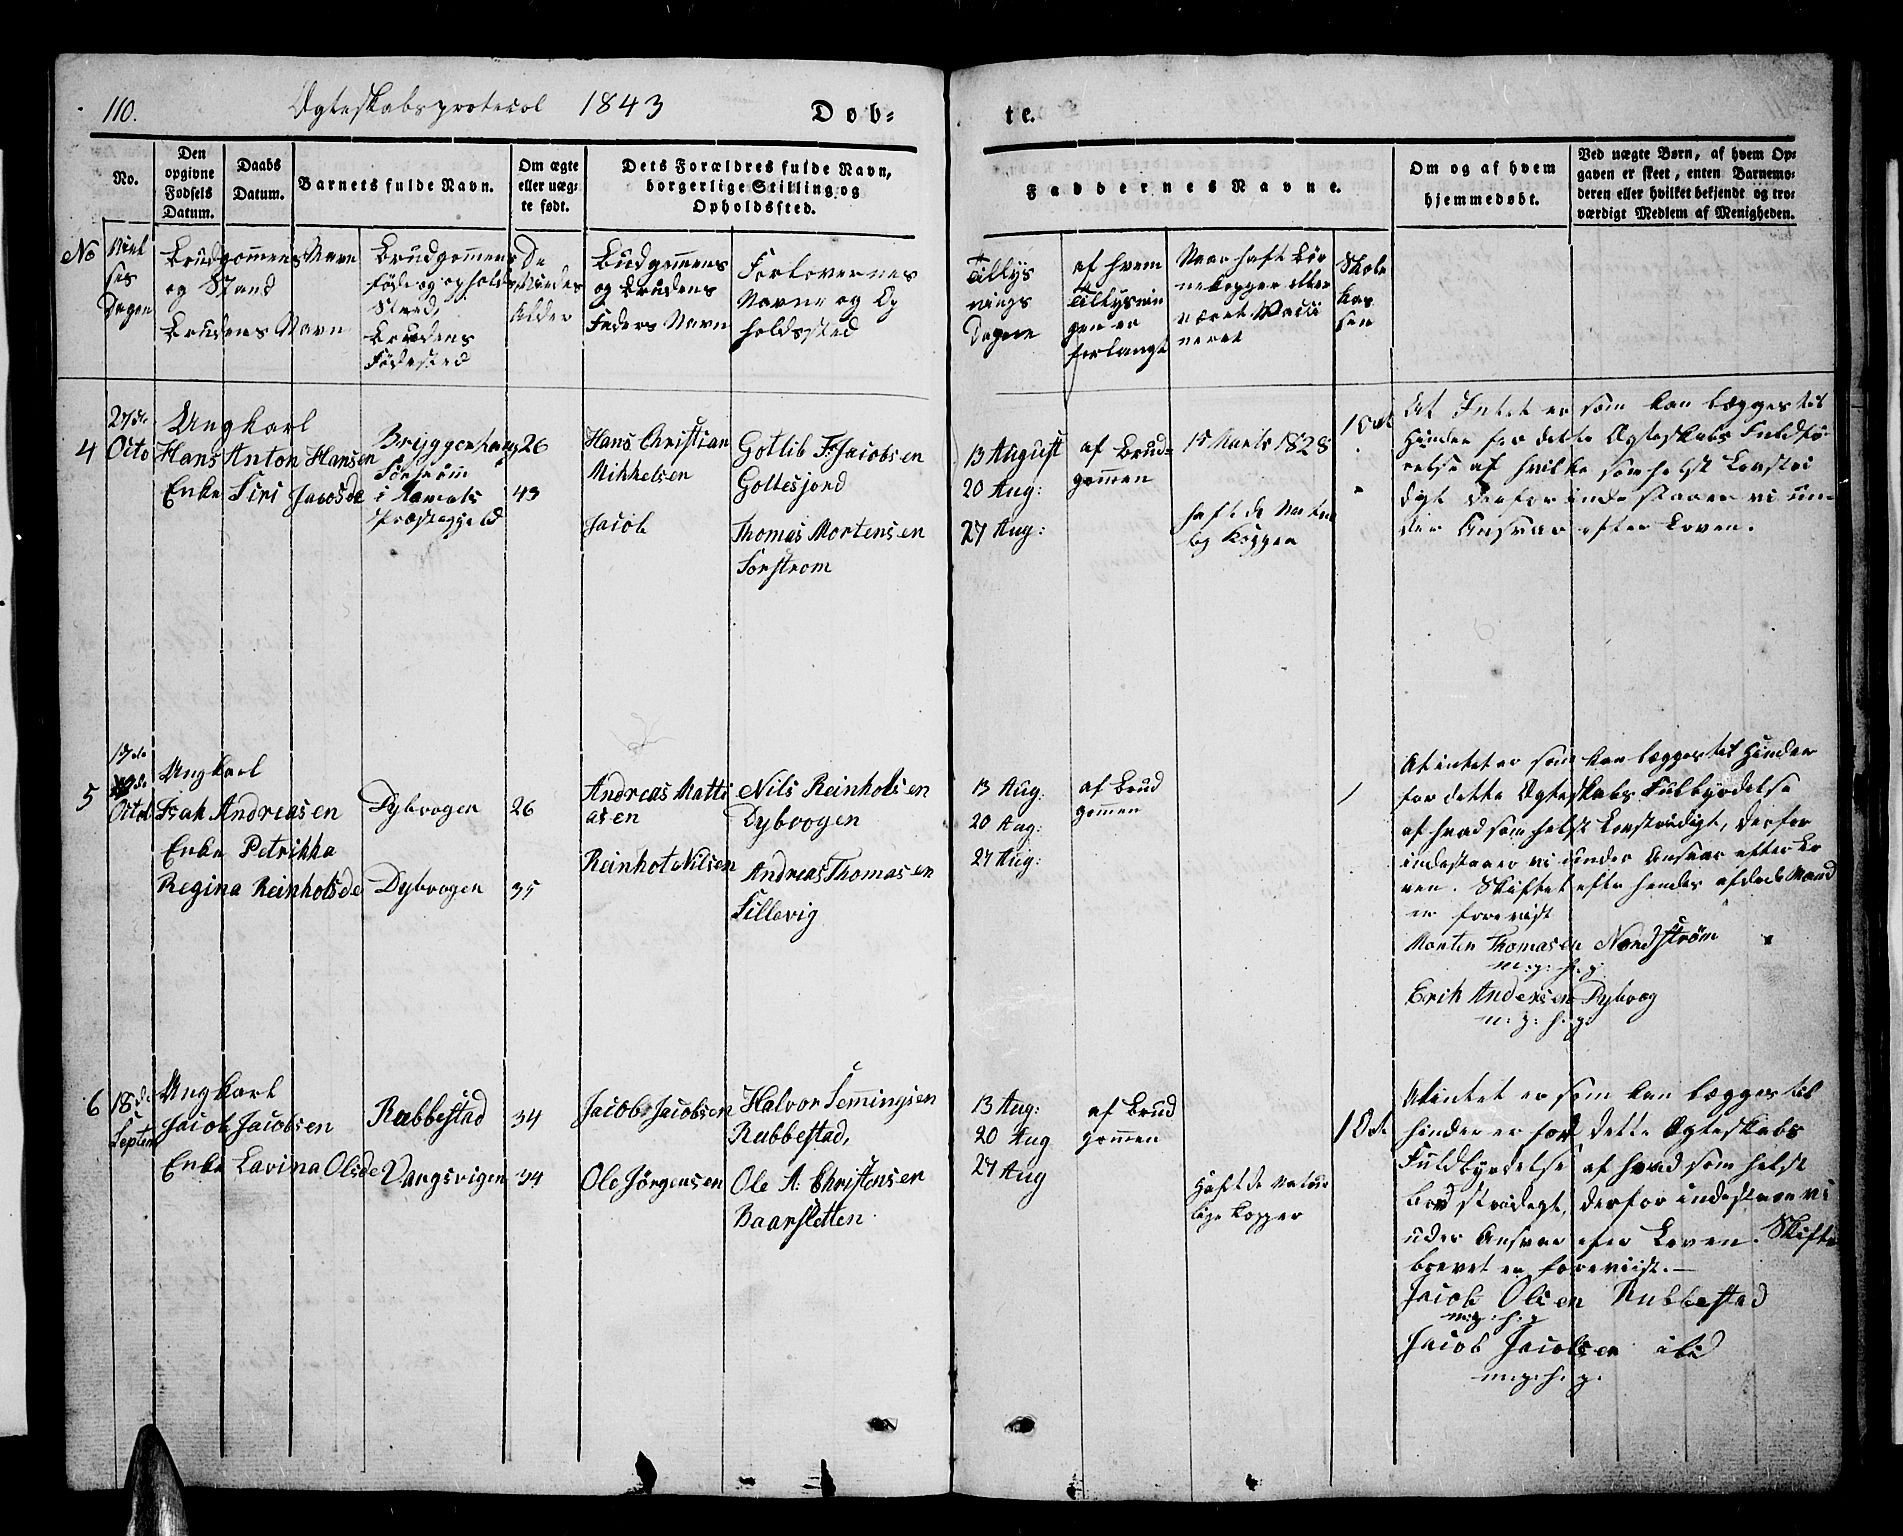 110. Ægteskabsprotocol 1843 Døb=
te.
No.
Den
opgivne
Fødsels
Datum.
Daabs
Datum.
Barnets fulde Navn.
Om ægte
eller uæg-
te født.
Dets Forældres fulde Navn,
borgerlige Stilling og
Opholdssted.
Faddernes Navne.
Om og af hvem
hjemmedøbt.
Ved uægte Børn, af hvem Op-
gaven er skeet, enten Barnemo-
deren eller hvilket bekjendt og tro-
værdigt Medlem af Menigheden.
No
Viel
ses
Dagen
Brudgommens Navn
og Stand
Brudens Navn
Brudgommens
føde og opholds
Sted,
Brudens
Fødested
De
Alder
Budgommens
og Brudens
Faders Navn
Forlovernes
Navne og Op
holdssted
Tillys
nings
Dagene
af hvem
Tillysnin
gen er
forlangt
Naar haft Kop
været Vacci
neret
Skole
kas
sen
4
27de
Octo
Ungkarl
Hans Anton Hansen
Enke Siri Jacobsde
Bryggenhaug
i
Præstegjeld
26
43
Hans Christian
Mikkelsen
Jacob
Gotlib F. Jacobsen
Gottesjord
Thomas Mortensen
Sørstrøm
13 August
20 Aug:
27 Aug:
af Brud-
gommen
15 Marts 1828
haft de Natur
lig Kopper
1 Ort
At Intet er som kan lægges til
Hinder for dette Ægteskabs Fuldfø
relse af hvilke somhelst Lovstri
digt derfor indestaaer vi un-
der Ansvar efter Loven.
5
17de
Octob
Ungkarl
Isak Andreasen
Enke Petrikka
Regina Reinholsde
Dybvogen
Dybvogen
26
35
Andreas Matti
asen
Reinhot Nilsen
Nils Reinholsen
Dybvogen
Andreas Thomasen
Sillevig
13 Aug:
20 Aug:
27 Aug:
af Brud
gommen
At intet er som kan lægges til Hinder
for dette Ægteskabs Fuldbyrdelse
af hvad somhelst Lovstridigt, derfor
indestaaer vi under Ansvar efter Lo
ven. Skiftet efter hendes afdøde Mand
er forevist
Morten Thomasen Nordstrøm
m: p: h: p:
Erik Andersen Dybvog
m: p: h: p:
6
18de
Septem
Ungkarl
Jacob Jacobsen
Enke Lavina Olsde
Rabbestad
Vangsvigen
34
34
Jacob Jacobsen
Ole Jørgensen
Halvor Lemingsen
Rubbestad,
Ole A: Christensen
Baarsletten.
13 Aug:
20 Aug
27 Aug
af Brud
gommen
Haft de natur
lige Kopper
1 Ort
At intet er som kan lægges til
hinder er for dette Ægteskabs
Fuldbyrdelse af hvad som helst
lov stridigt, derfor indestaae vi
uder Ansvar efter Loven. Skifte
brevet er foreviist.—
Jacob Olsen Rubbestad
m: p: h: p:
Jacob Jacobsen ibid
m: p: h: p: